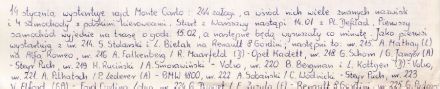 19 stycznia wystartuje rajd Monte Carlo: 244 załogi, a wśród nich wiele znanych nazwisk
i 4 samochody z polskimi kierowcami. Start z Warszawy nastąpi 14.01 z Pl. Defilad. Pierwszy
samochód wyjedzie na trasę o godz. 15.02, a następne będą wyruszały co minutę. Jako pierwsi
wystartują z nr. 214 S. Stolarski i L. Bielak na Renault 8 Gordini; następni to: nr. 215 A. Mathay (L)
na Alfa Romeo, nr. 216 A. Falkenberg / R. Maarfeld (3) Opel Kadett, nr. 218 G. Schorn / G. Tangler (A) -
Steyr Puch, nr. 219 H. Ruciński / A. Smorawiński - Volvo, nr. 220 B. Bergman / L. Köttgen (3) - Volvo,
nr. 221 A. Pilhatsch / P. Lederer (A) - BMW 1800, nr. 222 A. Sobański / C. Wodnicka - Steyr Puch, nr. 223
Elford (GB) - Ford Cortina Lotus, nr. 224 - Renault 8 Gordini, nr. 225